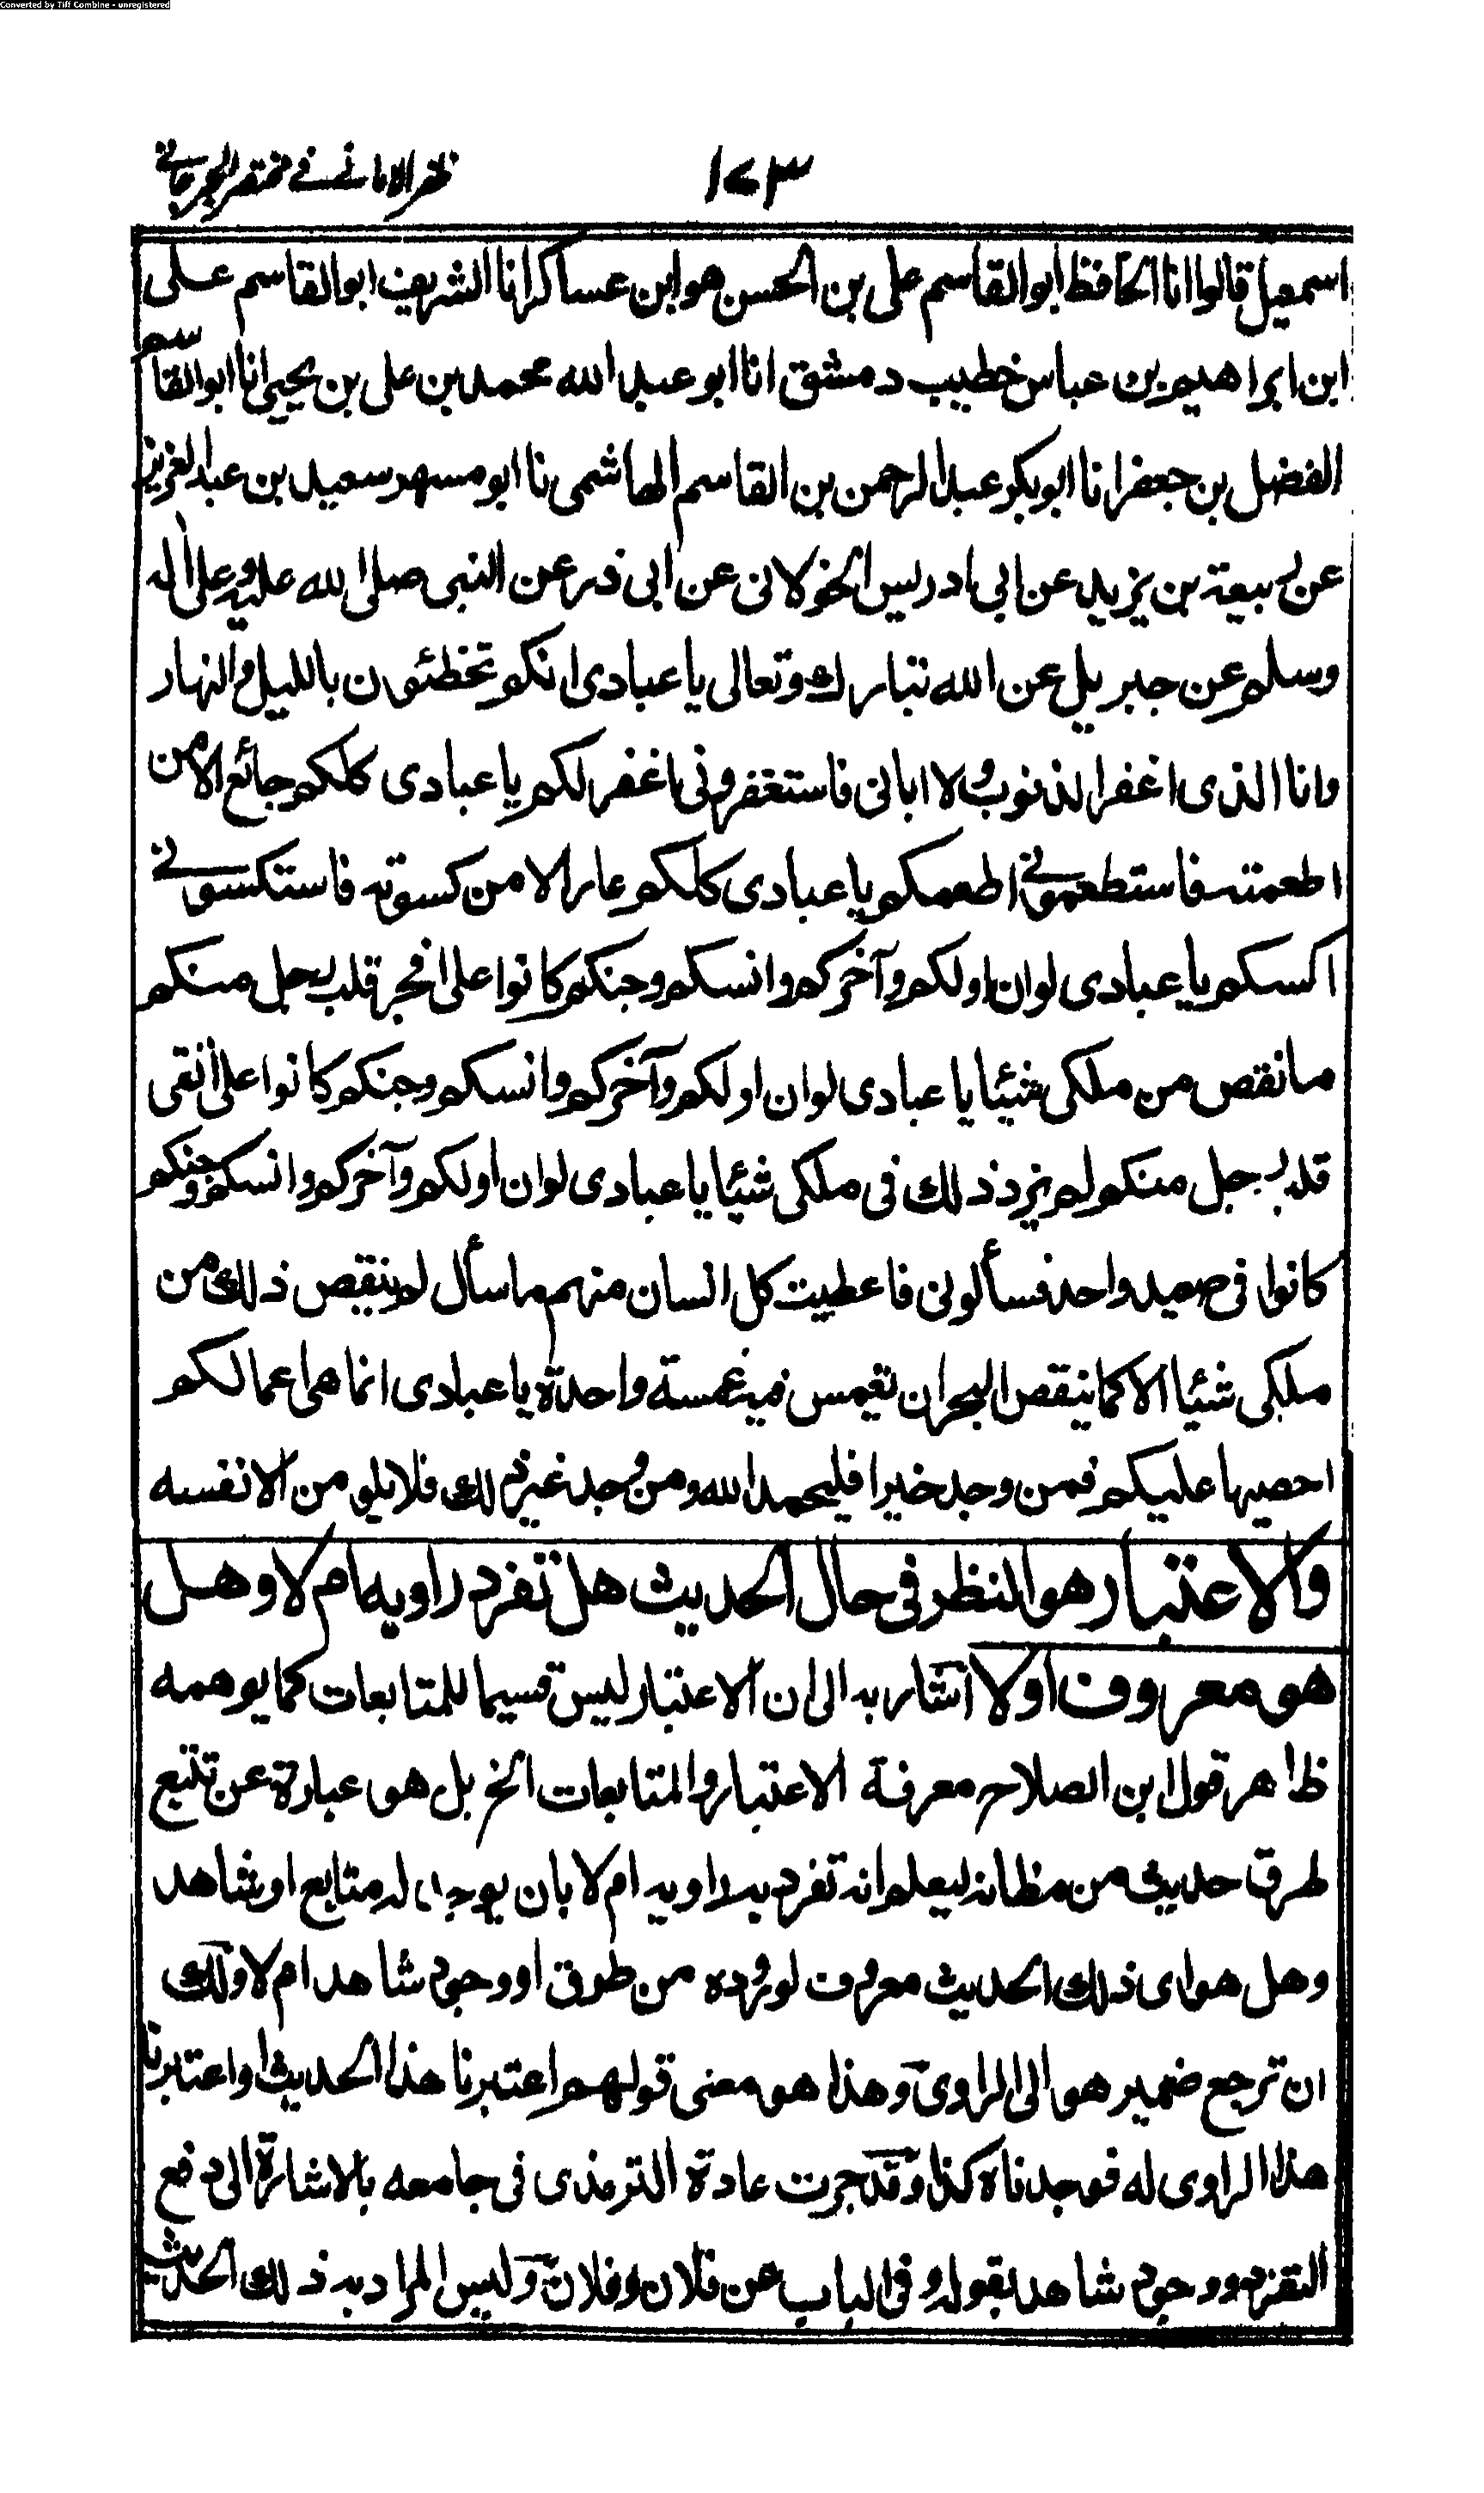 Converted by Tiff Combine - unregistered
١٧٣ ظفر الامانے فے مختصر الجرجانے
اسمعيل قالوا انا الحافظ ابو القاسم على بن الحسن هو ابن عساكر انا الشريف ابو القاسم على
ابن ابراهيم بن عباس خطيب دمشق انا ابو عبد الله محمد بن على بن يحيى انا ابو القاسم
الفضل بن جعفر انا ابو بكر عبد الرحمن بن القاسم الهاشمى نا ابو مسهر سعيد بن عبد العزيز
عن ربيعة بن يزيد عن ابى ادريس الخولانى عن ابى ذر عن النبى صلى الله عليه وعلى اله
وسلم عن جبريل عن الله تبارك وتعالى يا عبادى انكم تخطئون بالليل والنهار
وانا الذى اغفر الذنوب ولا ابالى فاستغفرونى اغفر لكم يا عبادى كلكم جائع الا من
اطعمته فاستطعمونے اطعمكم يا عبادى كلكم عار الا من كسوته فاستكسونے
اكسكم يا عبادى لو ان اولكم وآخركم وانسكم وجنكم كانوا على افجر قلب رجل منكم
ما نقص من ملكى شيئا يا عبادى لو ان اولكم وآخركم وانسكم وجنكم كانوا على اتقى
قلب رجل منكم لم يزد ذلك فى ملكى شيئا يا عبادى لو ان اولكم وآخركم وانسكم وجنكم
كانوا فى صعيد واحد فسألونى فاعطيت كل انسان منهم ما سأل لم ينقص ذلك من
ملكى شيئا الا كما ينقص البحر ان تغمس فيه غمسة واحدة يا عبادى انما هى اعمالكم
احصيها عليكم فمن وجد خيرا فليحمد الله ومن وجد غير ذلك فلا يلو من الا نفسه
والاعتبار هو النظر فى حال الحديث هل تفرد راويه ام لا وهل
هو معروف اولا اشار به الى ان الاعتبار ليس قسيما للمتابعات كما يوهمه
ظاهر قول ابن الصلاح معرفة الاعتبار والمتابعات الخ بل هو عبارة عن تتبع
طرق حديث من مظانه ليعلم انه تفرد به راويه ام لا بان يوجد له متابع او شاهد
وهل هو اى ذلك الحديث معروف لوروده من طرق او وجود شاهد ام لا ولك
ان ترجع ضمير هو الى الراوى وهذا هو معنى قولهم اعتبرنا هذا الحديث او اعتبرنا
هذا الراوى له فوجدناه كذا وقد جرت عادة الترمذى فى جامعه بالاشارة الى دفع
التفرد ووجود شاهد بقوله وفى الباب عن فلان وفلان وليس المراد به ذلك الحديث